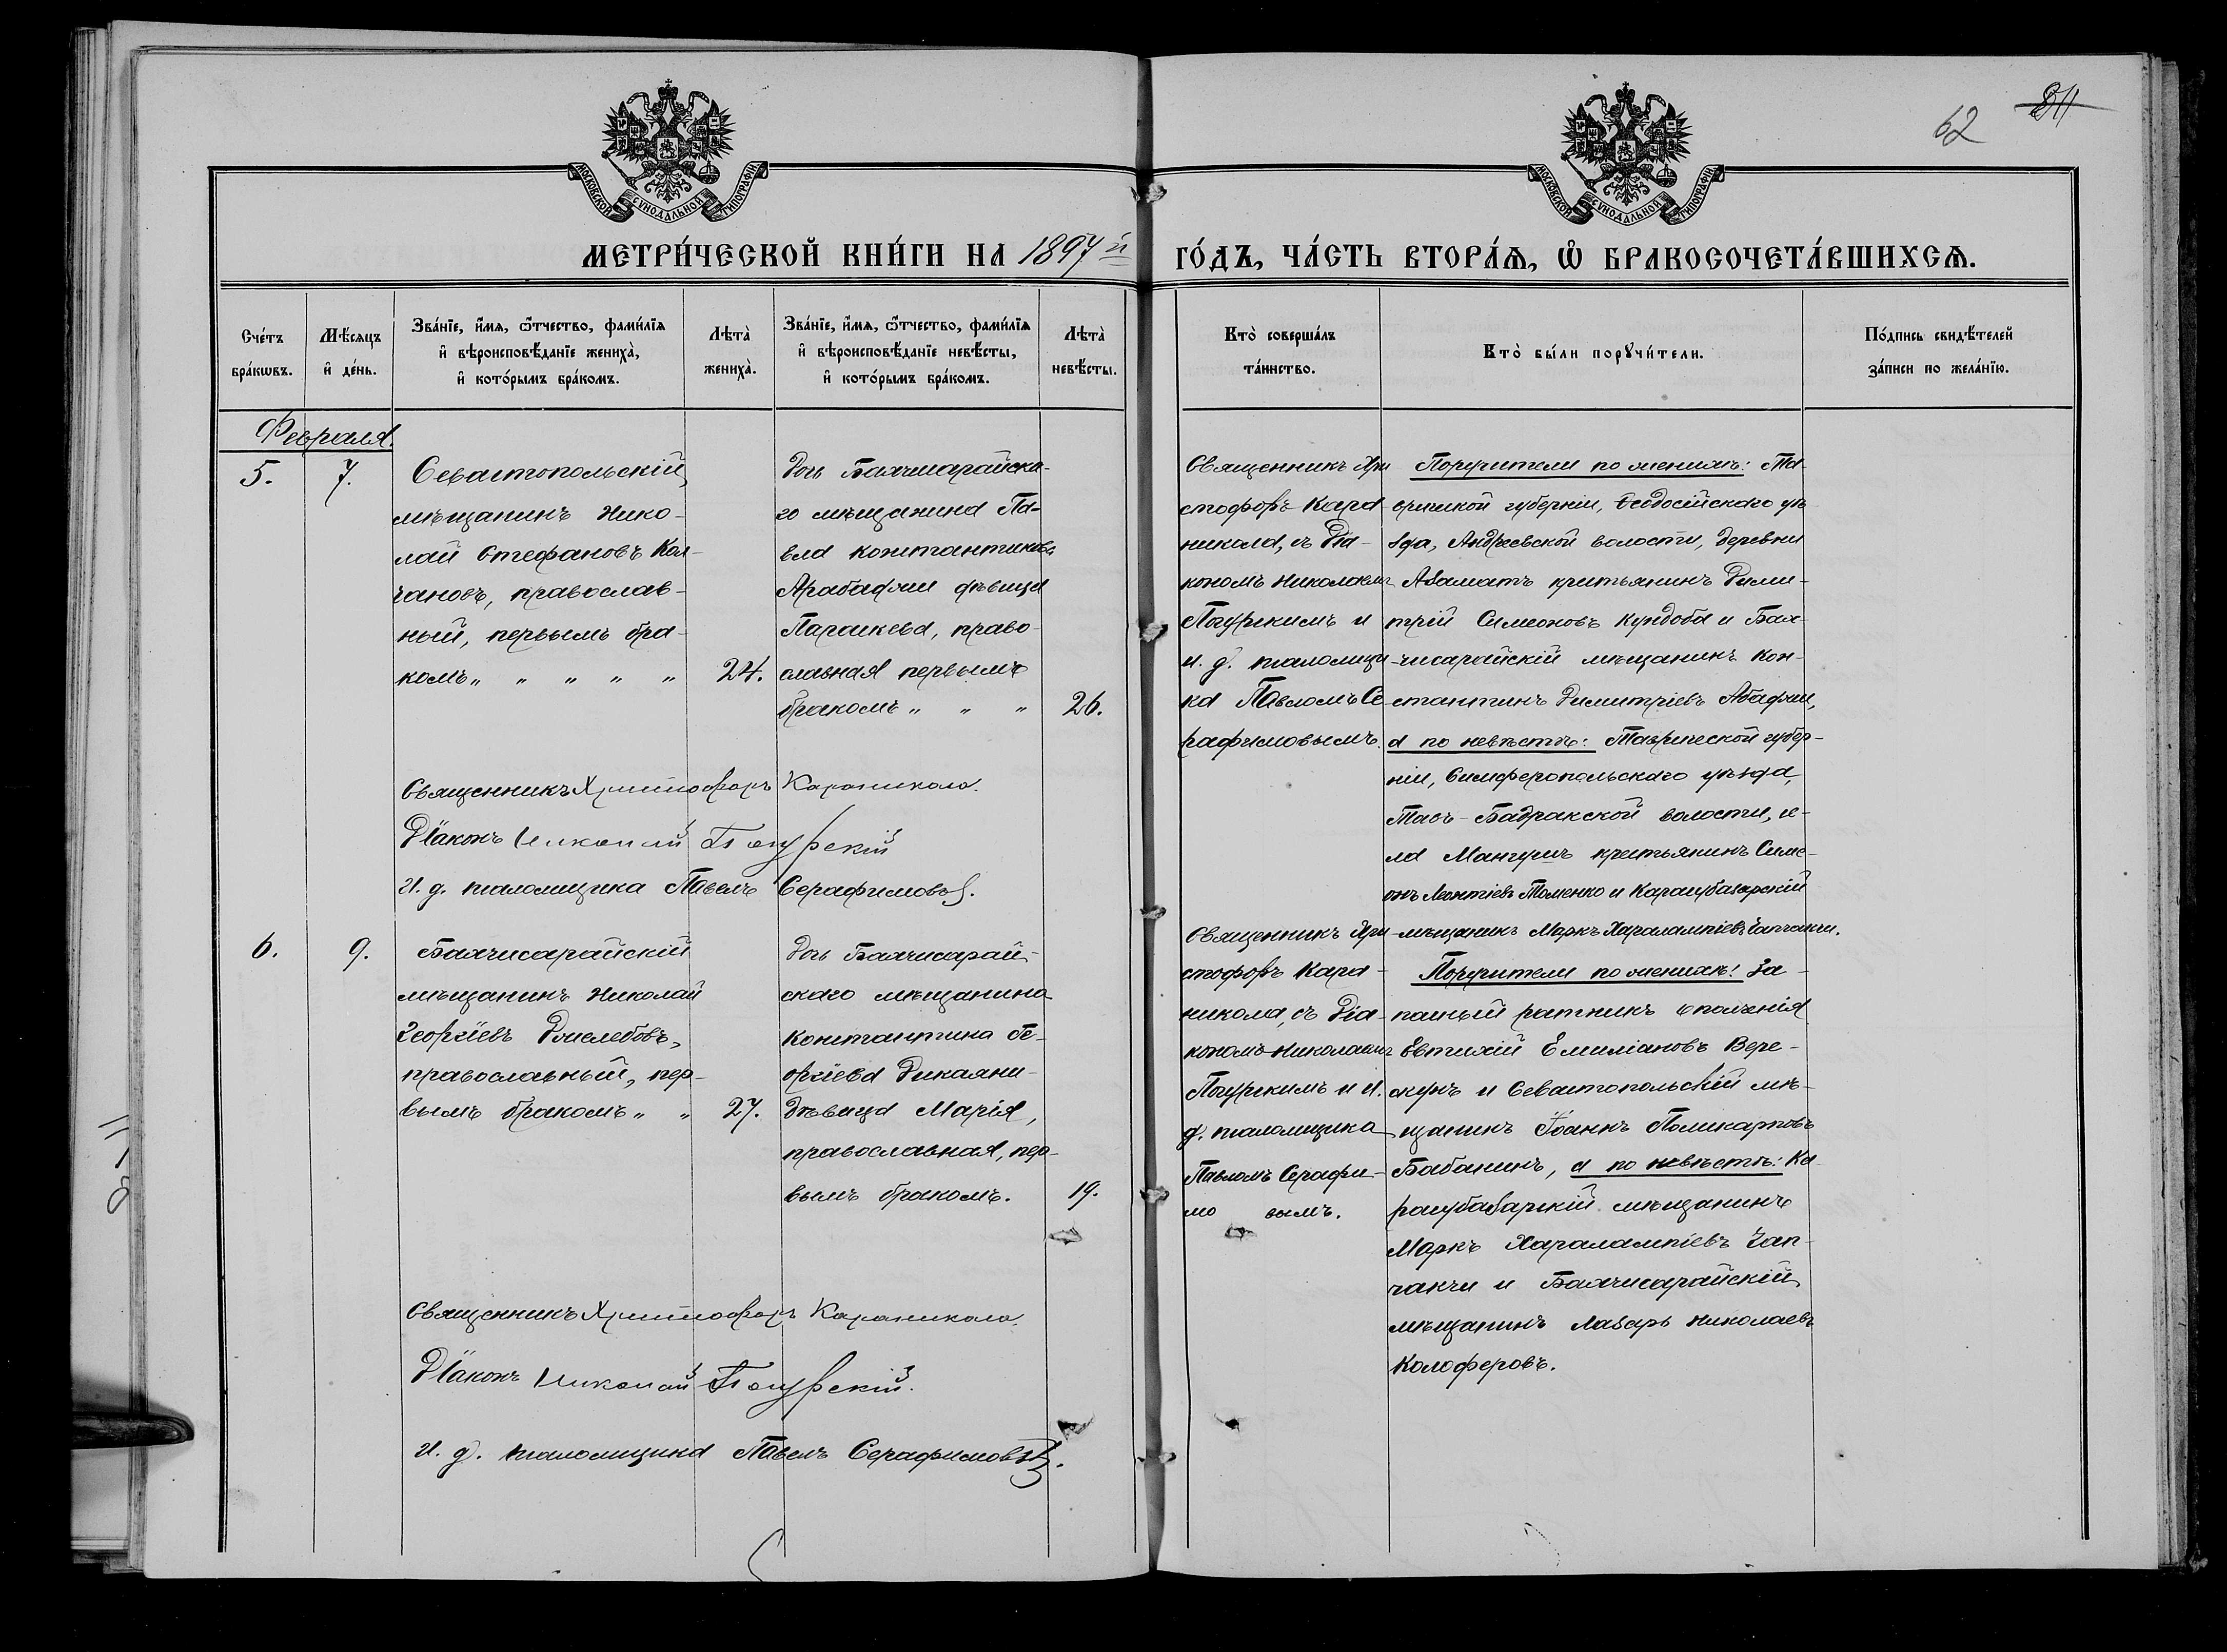 62 34
МОСКОВСКОЙ СѴНОДАЛЬНОЙ ТИПОГРАФІИ
МОСКОВСКОЙ СѴНОДАЛЬНОЙ ТИПОГРАФІИ
МЕТРИ́ЧЕСКОЙ КНИ́ГИ НА 1897й ГО́ДЪ, ЧА́СТЬ ВТОРА́Ѧ, Ѡ҆ БРАКОСОЧЕТА́ВШИХСѦ.
Сче́тъ
бра́кѡвъ.
Мѣ́сяцъ
и҆ де́нь.
Зва́нїе, и҆́мѧ, ѻ҆́тчество, фами́лїѧ
и҆ вѣроисповѣ́данїе жениха̀,
и҆ кото́рымъ бра́комъ.
Лѣта̀
жениха̀.
Зва́нїе, и҆́мѧ, ѻ҆́тчество, фами́лїѧ
и҆ вѣроисповѣ́данїе невѣ́сты,
и҆ кото́рымъ бра́комъ.
Лѣта̀
невѣ́сты.
Кто̀ соверша́лъ
та́инство.
Кто̀ бы́ли порꙋчи́тели.
По́дпись свидѣ́телей
за́писи по жела́нїю.
Февраля.
5.
7.
Севастопольскій
мѣщанинъ Нико-
лай Стефановъ Кол-
чановъ, православ-
ный, первымъ бра-
комъ „ „ „ „ „
24.
Дочь Бахчисарайска-
го мѣщанина Па-
вла Константинова
Арабаджи дѣвица
Параскева, право-
славная первымъ
бракомъ „ „ „
26.
Священникъ Хри
стофоръ Кара-
никола, съ Діа-
кономъ Николаемъ
Погурскимъ и
и. д. псаломщи-
ка Павломъ Се-
рафимовымъ.
Поручители по женихѣ: Та-
врической губерніи, Ѳеодосійскаго уѣ
зда, Андреевской волости, деревни
Азаматъ крестьянинъ Дими-
трій Симеоновъ Кундоба и Бах-
чисарайскій мѣщанинъ Кон-
стантинъ Димитріевъ Абаджи,
а по невѣстѣ: Таврической губер-
ніи, Симферопольскаго уѣзда,
Тавъ-Бадракской волости, се-
ла Мангушъ крестьянинъ Симе-
онъ Леонтіевъ Томенко и Карасубазарскій
мѣщанинъ Маркъ Харалампіевъ Чапчакчи.
Священникъ Христофоръ Караникола.
Діаконъ Николай Погурскій
И. д. псаломщика Павелъ Серафимовъ.
6.
9.
Бахчисарайскій
мѣщанинъ Николай
Георгіевъ Джелебовъ,
православный, пер-
вымъ бракомъ „ „
27.
Дочь Бахчисарай-
скаго мѣщанина
Константина Ге-
оргіева Дикаяни-
Дѣвица Марія,
православная, пер-
вымъ бракомъ.
19.
Священникъ Хри
стофоръ Кара-
никола, съ Діа-
кономъ Николаемъ
Погурскимъ и И.
д. псаломщика
Павломъ Серафи-
мо вымъ.
Поручители по женихѣ: За-
пасный ратникъ ополченія
Евтихій Емиліановъ Вере-
жунъ и Севастопольскій мѣ-
щанинъ Іоаннъ Поликарповъ
Бабанинъ, а по невѣстѣ: Ка
расубазарскій мѣщанинъ
Маркъ Харалампіевъ Чап-
чакчи и Бахчисарайскій
мѣщанинъ Лазарь Николаевъ
Колоферовъ.
Священникъ Христофоръ Караникола.
Діаконъ Николай Погурскій.
И. д. псаломщика Павелъ Серафимовъ.